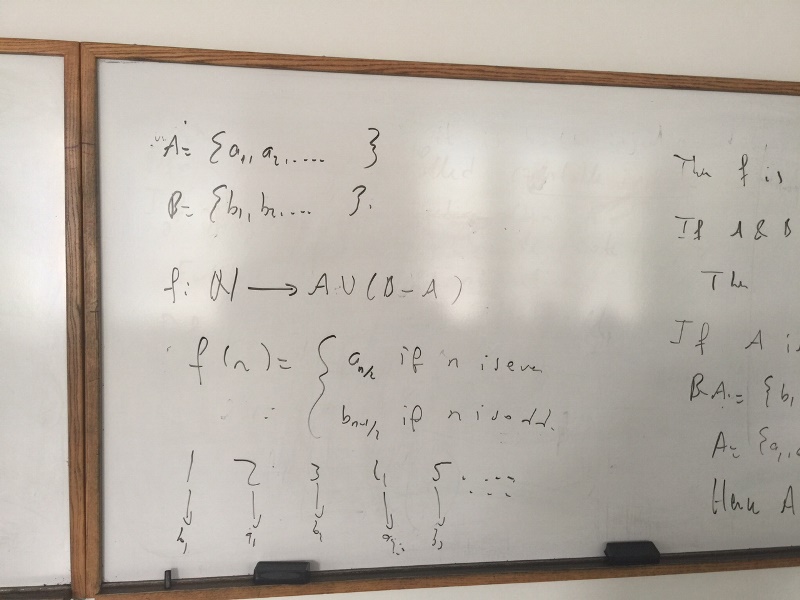 A = {a₁, a₂, .... }
B = {b₁, b₂, .... }.
f: ℕ → A ∪ (B - A)
f(n) = { a_{n/2} if n is even
b_{n+1/2} if n is odd.
1 2 3 4 5 .....
↓ ↓ ↓ ↓ ↓
b₁ a₁
The f is
If A & B
The
If A is
B = {b₁
A = {a₁, a
Here A